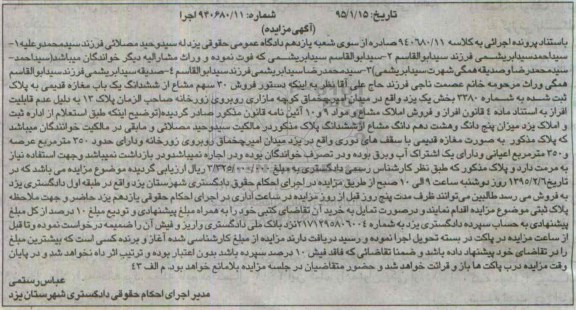 تاریخ: ۹۵/۱/۱۵ شماره: ۹۴۰۶۸۰/۱۱ اجرا
(آگهی مزایده)
باستناد پرونده اجرائی به کلاسه ۹۴۰۶۸۰/۱۱ صادره از سوی شعبه یازدهم دادگاه عمومی حقوقی یزد له سیدوحید مصلائی فرزند سیدمحمد وعلیه ۱-
سیداحمد سیدابریشمی فرزند سیدابوالقاسم ۲-سیدابوالقاسم سیدابریشمی که فوت نموده و وراث مشارالیه دیگر خواندگان میباشد(سیداحمد-
سیدمحمدرضا وصدیقه همگی شهرت سیدابریشمی)۳-سیدمحمدرضا سیدابریشمی فرزند سیدابوالقاسم ۴-صدیقه سیدابریشمی فرزند سیدابوالقاسم
همگی وراث مرحومه خانم عصمت ناجی فرزند حاج علی آقا نظر به اینکه دستور فروش ۳۰ سهم مشاع از ششدانگ یک باب مغازه قدیمی به پلاک
ثبت شده به شماره ۳۳۸۰ بخش یک یزد واقع در میدان امیرچخماق کوچه مزاری روبروی زورخانه صاحب الزمان پلاک ۱۳ به دلیل عدم قابلیت
افراز به استناد ماده ۴ قانون افراز و فروش املاک مشاع و مواد ۹ و ۱۰ آئین نامه قانون مذکور صادر گردیده(توضیح اینکه طبق استعلام از اداره ثبت
و املاک یزد میزان پنج دانگ وهشت دهم دانگ مشاع از ششدانگ پلاک مذکور در مالکیت سیدوحید مصلائی و مابقی در مالکیت خواندگان میباشد
که پلاک مذکور به صورت مغازه قدیمی با سقف های توری واقع در یزد میدان امیرچخماق روبروی زورخانه ودارای حدود ۳۵۰ مترمربع عرصه
و ۳۵۰ مترمربع اعیانی ودارای یک اشتراک آب وبرق بوده ودر تصرف خواندگان بوده ودر اجاره نمیباشد ودر بازداشت نمیباشد وجهت استفاده نیاز
به مرمت دارد و پلاک مذکور که طبق نظر کارشناس رسمی دادگستری به مبلغ ریال ارزیابی گردیده موضوع مزایده می باشد که در
تاریخ ۱۳۹۵/۲/۶ روز دوشنبه ساعت ۹ الی ۱۰ صبح از طریق مزایده در اجرای احکام حقوقی دادگستری شهرستان یزد واقع در طبقه اول دادگستری یزد
به فروش می رسد طالبین می توانند ظرف مدت پنج روز قبل از روز مزایده در ساعت اداری در اجرای احکام حقوقی یازدهم یزد حاضر و جهت ملاحظه
پلاک ثبتی موضوع مزایده اقدام نمایند و درصورت تمایل به خرید آن تقاضای کتبی خود را به همراه مبلغ پیشنهادی و تودیع مبلغ ۱۰ درصد از کل مبلغ
پیشنهادی به حساب سپرده دادگستری یزد به شماره نزد بانک ملی دادگستری واریز و فیش آن را ضمیمه درخواست نموده وتا قبل
از ساعت مزایده در پاکت در بسته تحویل اجرا نموده و رسید دریافت دارند مزایده از مبلغ کارشناسی شده آغاز و برنده کسی است که بیشترین مبلغ
را در تقاضای خود پیشنهاد داده باشد و ضمنا تقاضائی که فاقد فیش ۱۰ درصد سپرده باشد بدون اعتبار بوده و ترتیب اثر داده نخواهد شد و در پایان
وقت مزایده درب پاکت ها باز و قرائت خواهد شد و حضور متقاضیان در جلسه مزایده بلامانع خواهد بود. م الف ۴۳
عباس رستمی
مدیر اجرای احکام حقوقی دادگستری شهرستان یزد